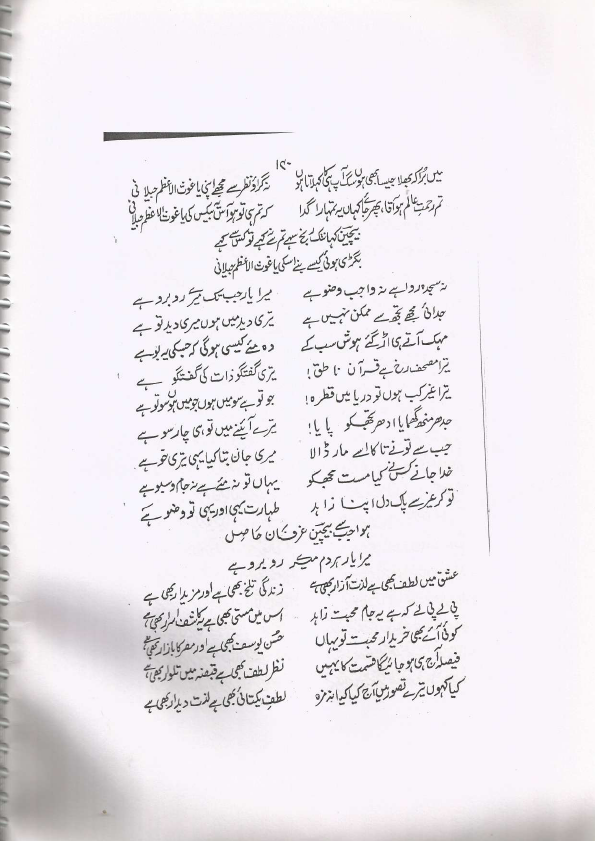 ۱۲۰
میں بُرا کہ بھلا جیسا بھی ہوں سگ آپ ہی کا کہلاتا ہوں نہ گراؤ نظر سے مجھے اپنی یا غوث الاعظم جیلانی
تم رحمتِ عالم ہو آقا، پھر جائے کہاں یہ تمہارا گدا کہ تم ہی تو ہو آس بیکس کی یا غوث الاعظم جیلانی
بیچین کہاں تک رنج سہے تم سے نہ کہے تو کس سے کہے
بگڑی ہوئی کیسے بنے اسکی یا غوث الاعظم جیلانی
نہ سجدہ روا ہے نہ واجب وضو ہے میرا یار جب تک میرے روبرو ہے
جدائی مجھے تجھ سے ممکن نہیں ہے تری دید میں ہوں میری دید تو ہے
مہک آتے ہی اڑ گئے ہوش سب کے وہ مئے کیسی ہوگی کہ جسکی یہ بو ہے
ترا مصحفِ رخ ہے قرآن ناطق! تری گفتگو ذات کی گفتگو ہے
ترا غیر کب ہوں تو دریا میں قطرہ! جو تو ہے سو میں ہوں جو میں ہوں سو تو ہے
جدھر منھ گھمایا ادھر تجھکو پایا! ترے آئینے میں تو ہی چار سو ہے
جب سے تو نے تاکا اسے مار ڈالا میری جان بتا کیا یہی تری خو ہے
خدا جانے کس نے کیا مست مجھکو یہاں تو نہ مئے ہے نہ جام و سبو ہے
تو کر غیر سے پاک دل اپنا زاہد طہارت یہی اور یہی تو وضو ہے
ہوا جب سے بیچین عرفان حاصل
مرا یار ہر دم میرے روبرو ہے
عشق میں لطف بھی ہے لذت آزار بھی ہے زندگی تلخ بھی ہے اور مزیدار بھی ہے
پی لے پی لے کہ ہے یہ جام محبت زاہد اس میں مستی بھی ہے یہ کاشف اسرار بھی ہے
کوئی آئے بھی خریدار محبت تو یہاں حسن یوسف بھی ہے اور مصر کا بازار بھی ہے
فیصلہ آج ہی ہو جائیگا قسمت کا یہیں نظر لطف بھی ہے قبضہ میں تلوار بھی ہے
کیا کہوں تیرے تصور میں آج کیا کیا مزہ لطفِ یکتائی بھی ہے لذت دیدار بھی ہے